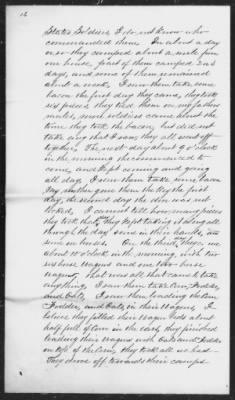 12
States Soldiers I do not know who
commanded them. In about a day
or so they camped about a mile from
our house, part of them camped 2 or 3
days, and some of them remained
about a week, I saw them take some
bacon the first day they came, they took
six pieces they tied them on my father's
mules, most soldiers came about the
time they took the bacon, but did not
take any that I saw they all went off
together. The next day about 9 o'clock
in the morning they commenced to
come, and kept coming and going
all day. I saw them take some bacon
my mother gave them the key the first
day, the second day the door was not
locked. I cannot tell how many pieces
they took that day they kept taking it along all
through the day some in their hands, and
some on horses. On the third day,
about 10 o'clock in the morning, with two
six horse wagons and one two horse
wagon, that was all that came to take
anything. I saw them take Corn, Fodder,
and Oats. I saw them loading the Corn
Fodder, and Oats, in their wagons. I
believe they filled their wagon beds about
half full of Corn in the ears, they finished
loading their wagons with Oats and Fodder
on top of the Corn, they took all we had
They drove off towards their camps